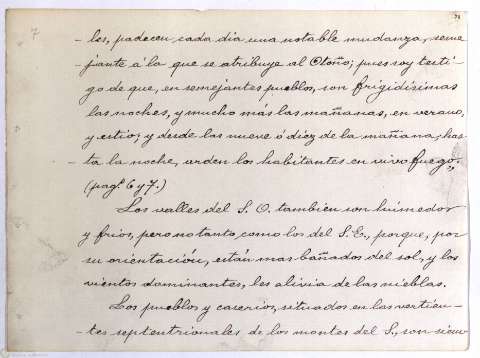 7
- les, padecen cada dia una notable mudanza, seme
- jante á la que se atribuye al Otoño; pues soy testi-
go de que, en semejantes pueblos, son frigidísimas
las noches, y mucho más las mañanas, en verano,
y estio; y desde las nueve ó diez de la mañana, has-
- ta la noche, arden los habitantes en vivo fuego."
(pag.s 6 y 7.)
Los valles del S. O. tambien son húmedos
y frios, pero no tanto, como los del S.E., porque, por
su orientación, están mas bañados del sol, y los
vientos dominantes, les alivia de las nieblas.
Los pueblos y caserios, situados en las vertien-
- tes septentrionales de los montes del S., son siem